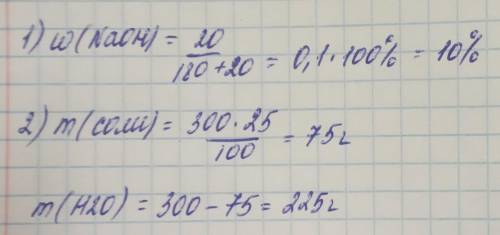 1) ω(NaOH) = 20/180+20 = 0,1·100% = 10%
2) m(соли) = 300·25/100 = 75г
m(H2O) = 300-75 = 225г